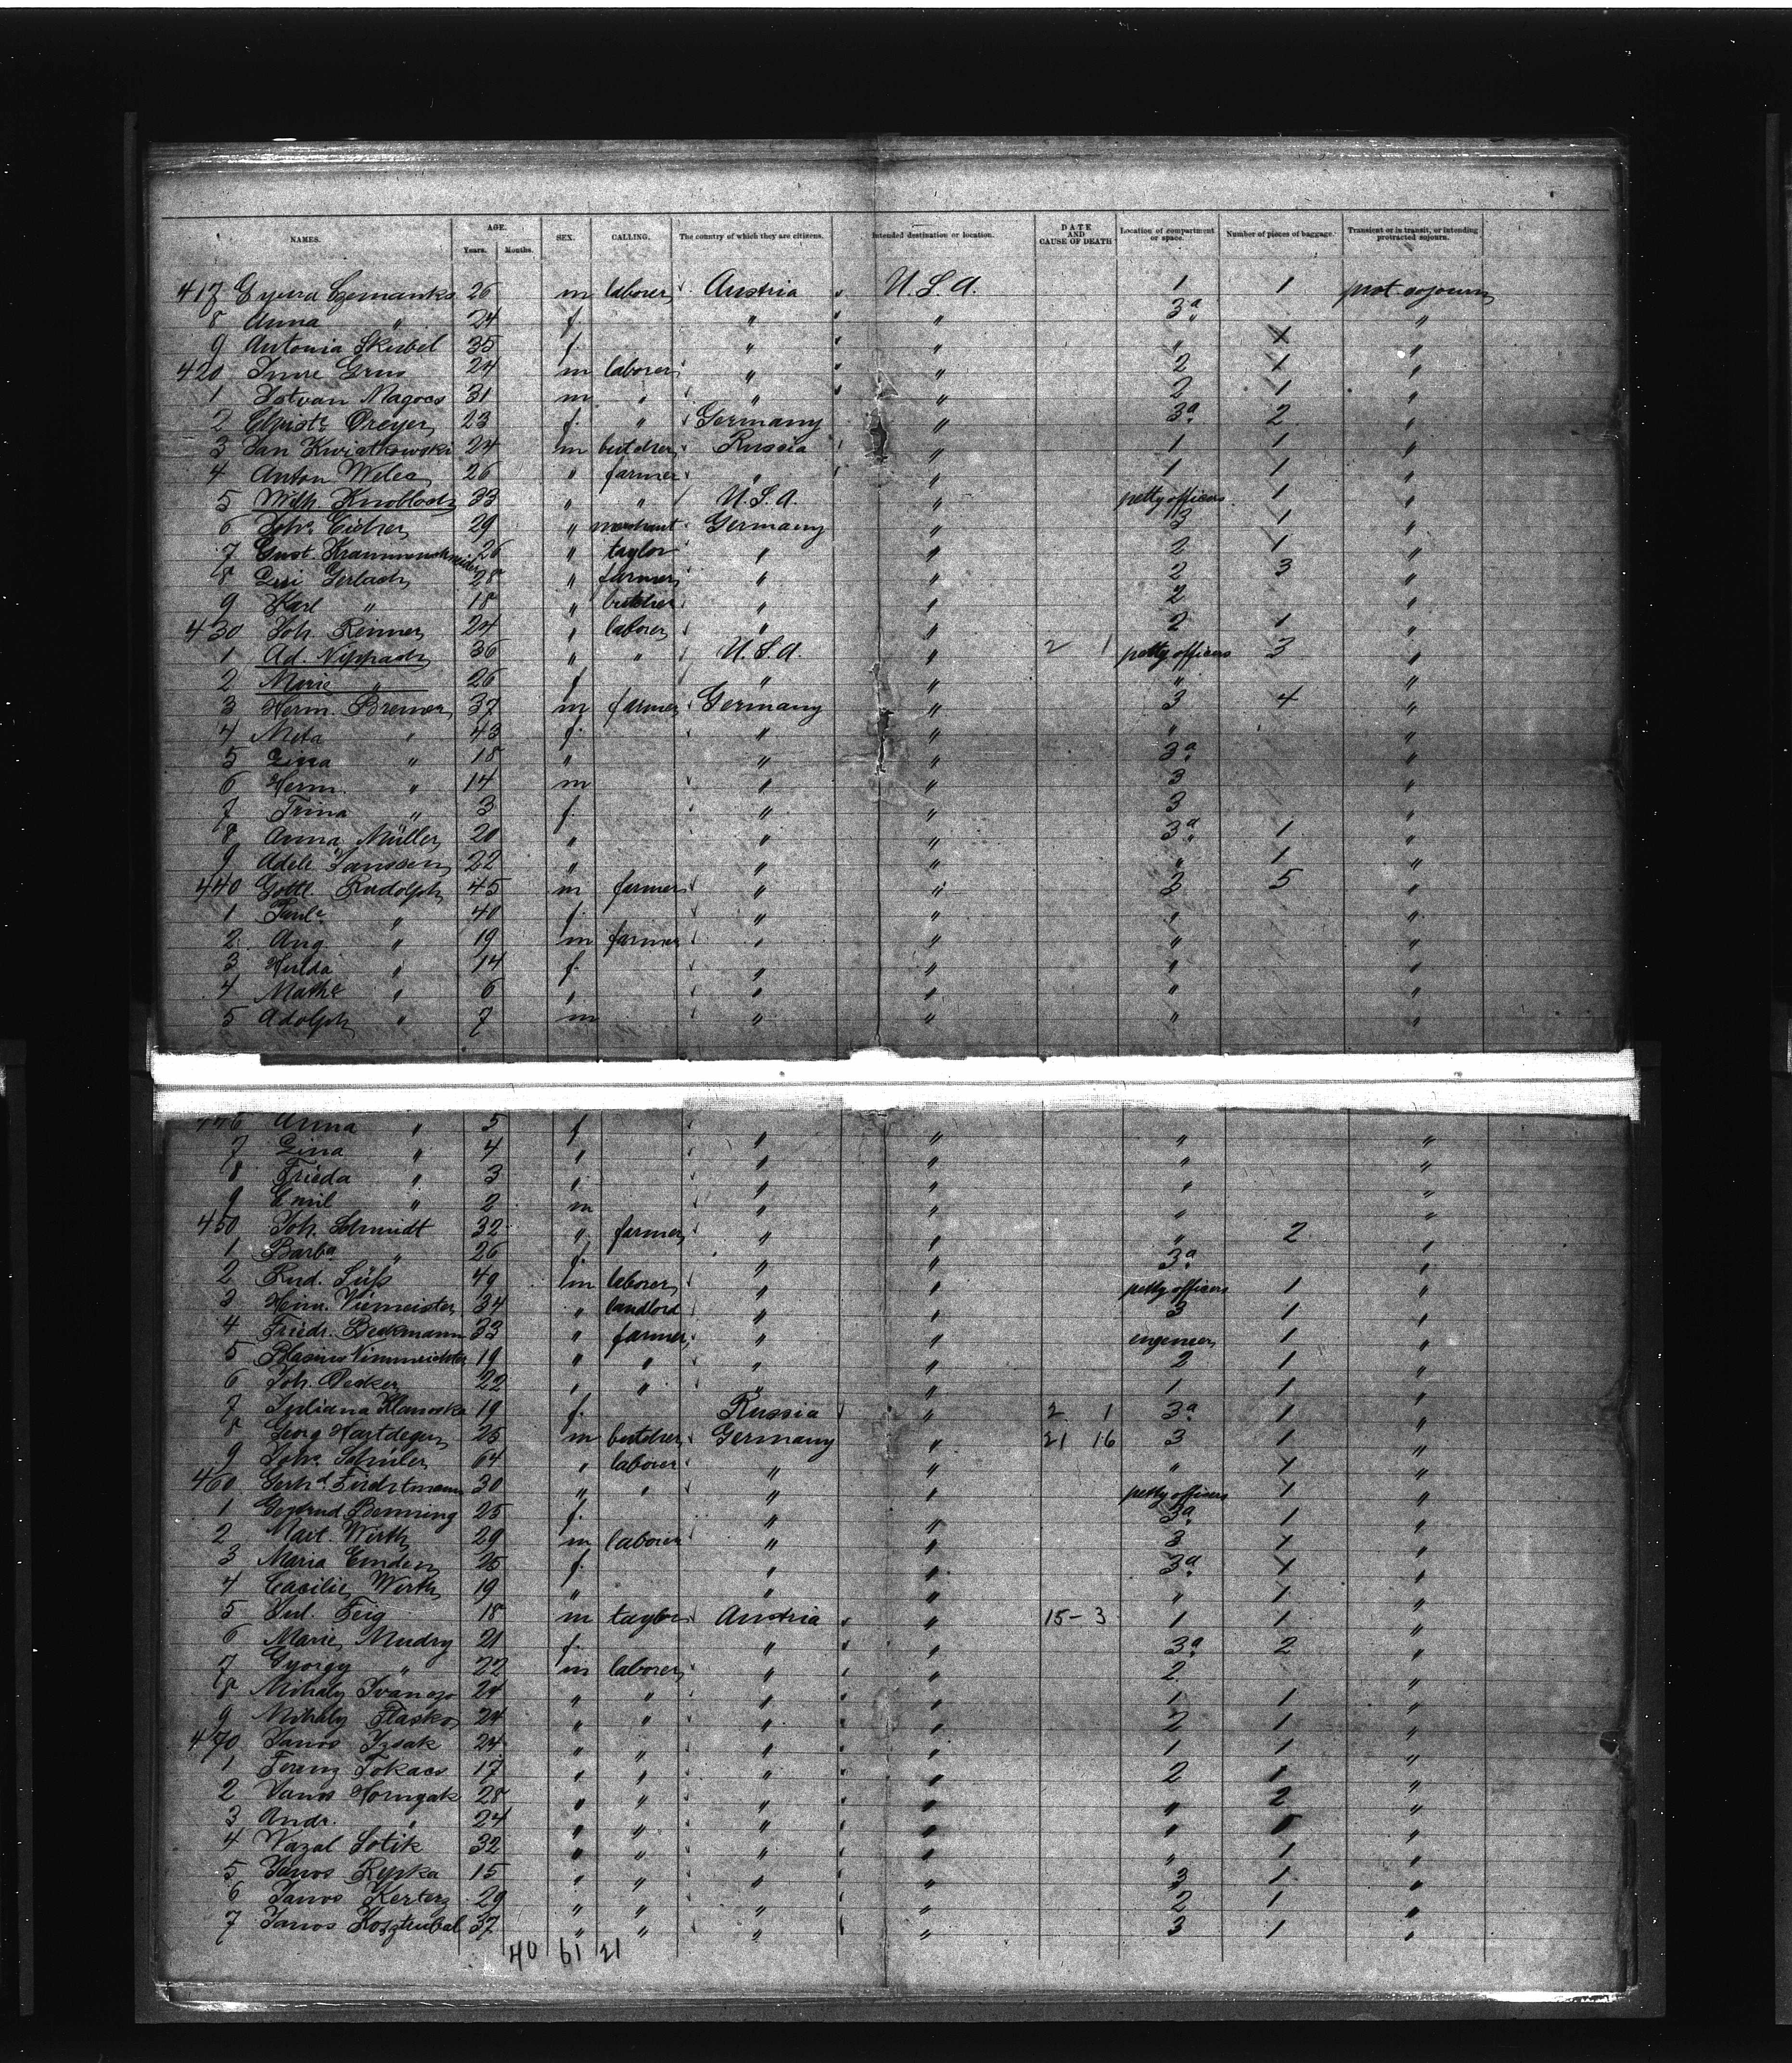 NAMES. AGE. Years. Months. SEX. CALLING. The country of which they are citizens. Intended destination or location. DATE AND CAUSE OF DEATH Location of compartment or space. Number of pieces of baggage. Transient or in transit, or intending protracted sojourn.
417 26 m laborer Austria U.S.A. 1 1 prot. sojourn
8 Anna " 24 f. " " 3a "
9 Antonia Skubel 35 f. " " " 1 "
420 Imre Grus 24 m laborer " " 2 1 "
1 Istvan Magocs 31 m " " " 2 1 "
2 Christe Dreyer 23 f. " Germany " 3a 2 "
3 Jan Kwiatkowski 24 m butcher Russia " 1 1 "
4 Anton Weles 26 " farmer " " 1 1 "
5 Wilh. Knobloch 33 " " U.S.A. " petty officers 1 "
6 Johs Eicher 29 " merchant Germany " 3 1 "
7 Gust. Krammenschneider 26 " taylor " " 2 1 "
8 Gerlach 28 " farmer " " 2 3 "
9 Karl " 18 " butcher " " 2 "
430 Joh. Renner 24 " laborer " " 2 1 "
1 Ad. Nippach 36 " " U.S.A. " 2 1 petty officers 3 "
2 Marie " 26 f " " " "
3 Herm. Bremer 37 m farmer Germany " 3 4 "
4 Meta " 43 f. " " " "
5 Lina " 18 " " " 3a "
6 Herm. " 14 m " " 3 "
7 Trina " 3 f. " " 3 "
8 Anna Müller 20 " " " 3a 1 "
9 Adele Janssen 22 " " " " 1 "
440 Gottl. Rudolph 45 m farmer " " 3 5 "
1 Paule " 40 f. " " " "
2 Aug. " 19 m farmer " " " "
3 Hulda " 14 f. " " " "
4 Mathe " 6 " " " " "
5 Adolph " 7 m " " " "
446 Anna " 5 f " " " "
7 Lina " 4 " " " " "
8 Frieda " 3 " " " " "
9 Emil " 2 m " " " "
450 Joh. Schmidt 32 " farmer " " " 2 "
1 Barba " 26 f. " " 3a "
2 Rud. Süß 49 m laborer " " petty officers 1 "
3 Heinr. Viemeister 34 " landlord " " 3 1 "
4 Friedr. Beckmann 33 " farmer " " engeneer 1 "
5 Vimmeichter 19 " " " " 2 1 "
6 Joh. Decker 22 " " " " 1 1 "
7 Juliana Klanoska 19 f. Russia " 2 1 3a 1 "
8 Georg Hartdegen 25 m butcher Germany " 21 16 3 1 "
9 Johs Schuler 64 " laborer " " " 1 "
460 Gerhd. 30 " " " " petty officers 1 "
1 Gertrud Benning 25 f. " " 3a 1 "
2 Mart. Wirth 29 m laborer " " 3 1 "
3 Maria Emden 25 f. " " 3a 1 "
4 Cacilie Wirth 19 " " " " 1 "
5 Jul. Feig 18 m taylor Austria " 15-3 1 1 "
6 Marie Mudry 21 f. " " 3a 2 "
7 Gyorgy " 22 m laborer " " 2 "
8 Mihaly Ivanczo 24 " " " " 1 1 "
9 Mihaly Flasko 24 " " " " 2 1 "
470 Janos Izsak 24 " " " " 1 1 "
1 Ferenz Tokacs 17 " " " " 2 1 "
2 Janos Hornyak 28 " " " " " 2 "
3 Andr. " 24 " " " " " "
4 Vazal Sotik 32 " " " " " 1 "
5 Janos Rypka 15 " " " " 3 1 "
6 Janos Kertesz 29 " " " " 2 1 "
7 Janos 37 " " " " 3 1 "
40 61 21